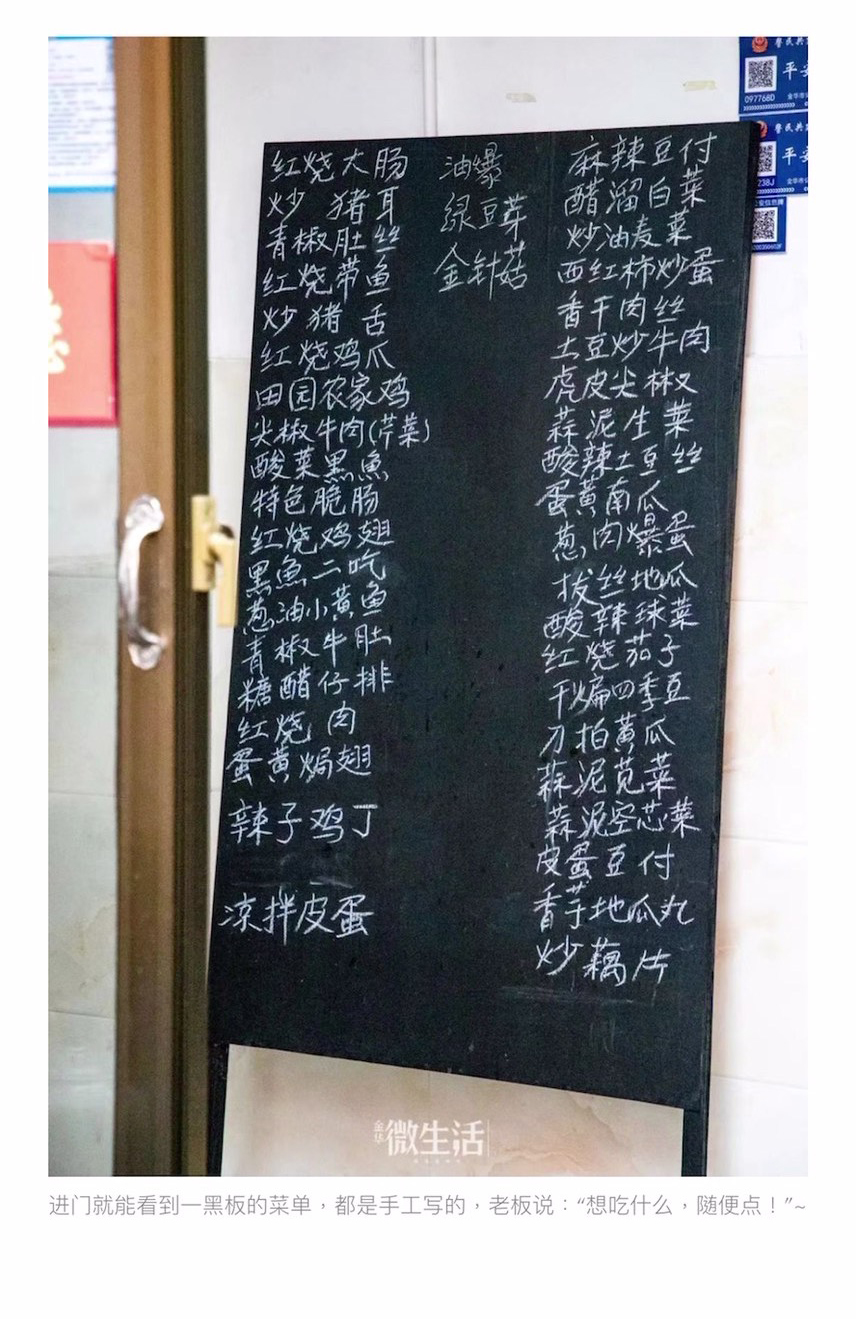 红烧大肠
炒猪耳
青椒肚丝
红烧带鱼
炒猪舌
红烧鸡爪
田园农家鸡
尖椒牛肉(芹菜)
酸菜黑魚
特色脆肠
红烧鸡翅
黑魚二吃
葱油小黄鱼
青椒牛肚
糖醋仔排
红烧肉
蛋黄焗翅
辣子鸡丁
凉拌皮蛋
油爆
绿豆芽
金针菇
麻辣豆付
醋溜白菜
炒油麦菜
西红柿炒蛋
香干肉丝
土豆炒牛肉
虎皮尖椒
蒜泥生菜
酸辣土豆丝
蛋黄南瓜
葱肉爆蛋
拔丝地瓜
酸辣球菜
红烧茄子
干煸四季豆
刀拍黄瓜
蒜泥苋菜
蒜泥空芯菜
皮蛋豆付
香芋地瓜丸
炒藕片
警民共
平安
097768D
金华市
警民共
平安
238J
金华 微生活
进门就能看到一黑板的菜单，都是手工写的，老板说：“想吃什么，随便点！”~